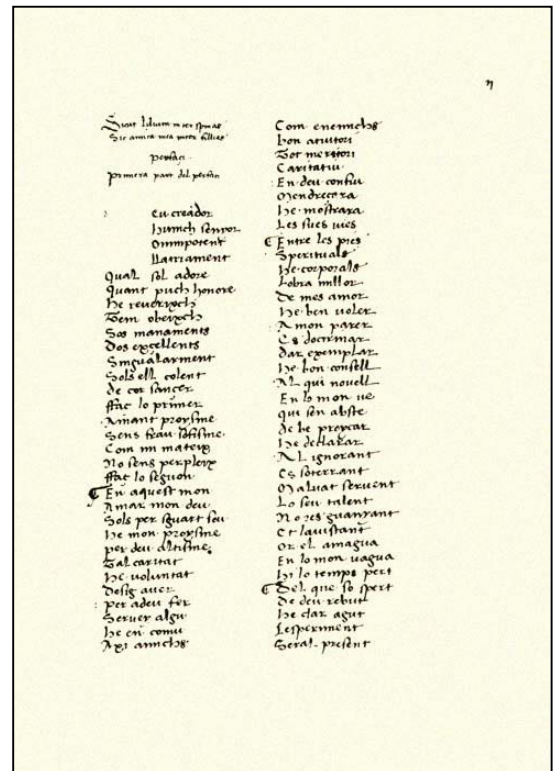 n
Sicut lilium inter spinas
Sic amica mea inter fillias
Perfaci
Primera part del perfaci
Eu creador
huinch senyor
Omnipotent
Lauriament
Qual sol adore
Quant puch honore
He reverixch
Tem obeixch
Sos manaments
Dos excellents
Singularment
Sols ell colent
de cor sancer
ffac lo primer
Amant proysme
Sens frau sofisme
Com mi mateix
No sens perpleix
ffac lo segon
En aquest mon
Amar mon deu
Sols per sguart seu
He mon proysme
per deu altisme
Tal caritat
He voluntat
Desig aver
per adeu fer
Server algu
he en comu
Axi amichs
Com enemichs
bon aiutori
Tot meritori
Caritatiu
En deu confiu
Mendreçara
He mostrara
Les sues vies
Entre les pies
Sperituals
He corporals
Lobra millor
De mes amor
He ben voler
A mon parer
Es doctrinar
dar exemplar
He bon consell
Al qui novell
En lo mon ve
qui son abste
de be provar
he declarar
AL ignorant
Es soterrant
Malvat servent
Lo seu talent
No res guanyant
Et lavistant
Or el amagua
En lo mon vagua
hi lo temps pert
Del que so spert
De deu rebut
he clar agut
Lesperiment
Seral present